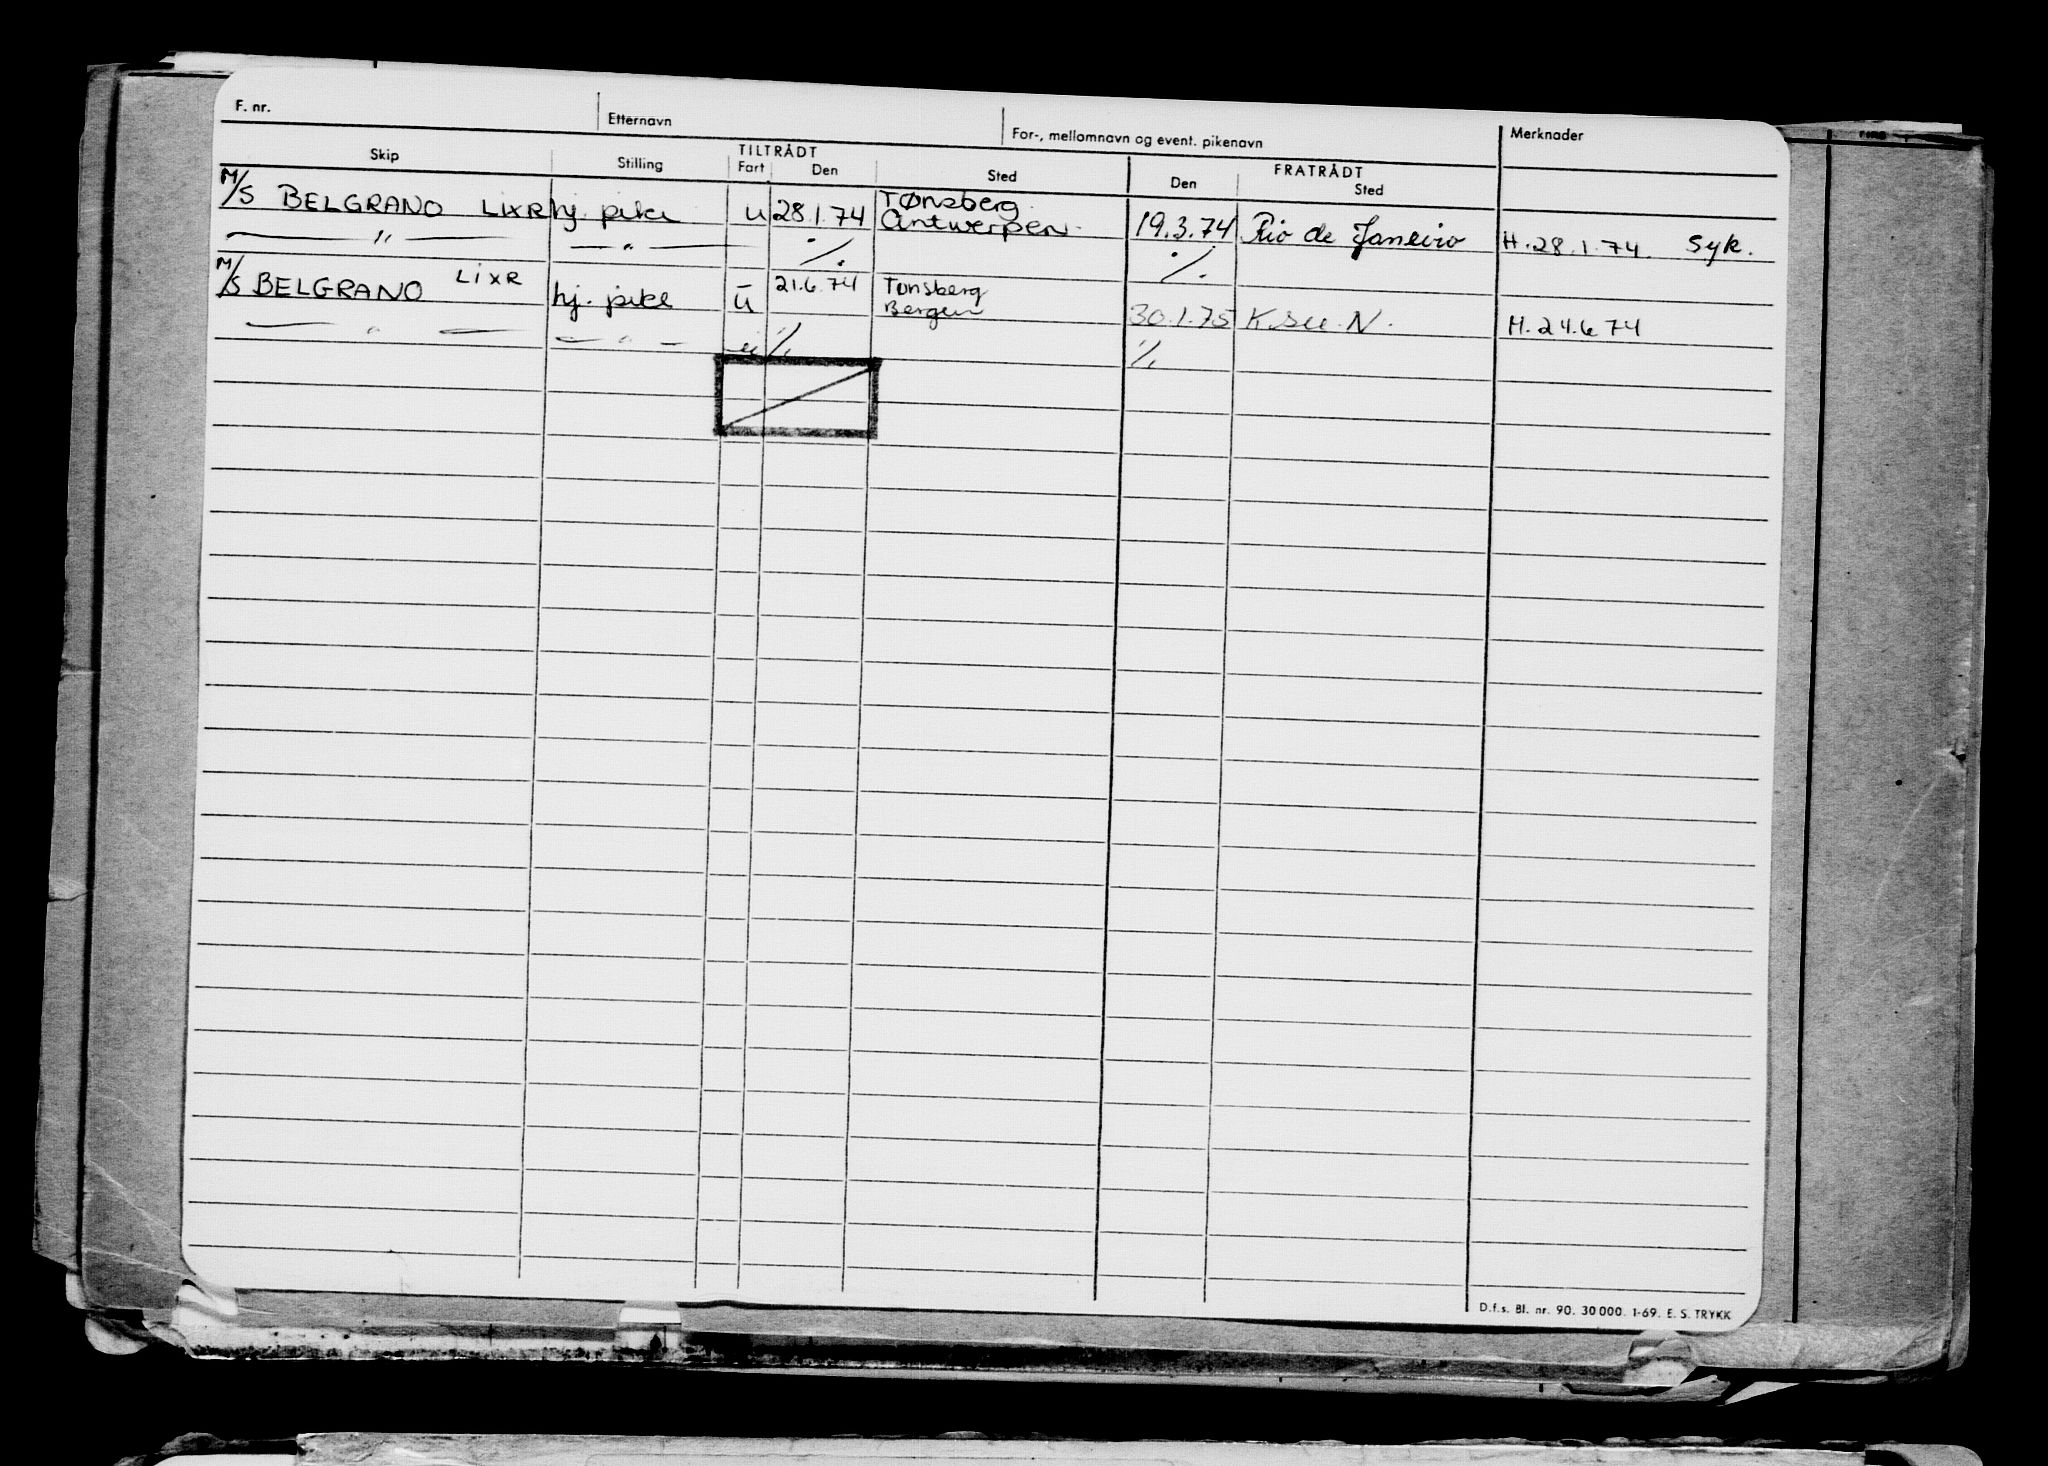 F. nr. Etternavn For-, mellomnavn og event. pikenavn Merknader
TILTRÅDT FRATRÅDT
Skip Stilling Fart Den Sted Den Sted
M/S BELGRANO LIXR hj. pike u 28.1.74 Tønsberg Antwerpen. 19.3.74 Rio de Janeiro H.28.1.74. Syk.
— " — — " — ·/. ·/.
M/S BELGRANO LIXR hj. pike u 21.6.74 Tønsberg Bergen 30.1.75 K N. H.24.6.74
— " — — " — u ·/. ·/.
D.f.s. Bl. nr. 90. 30 000. 1-69. E. S. TRYKK